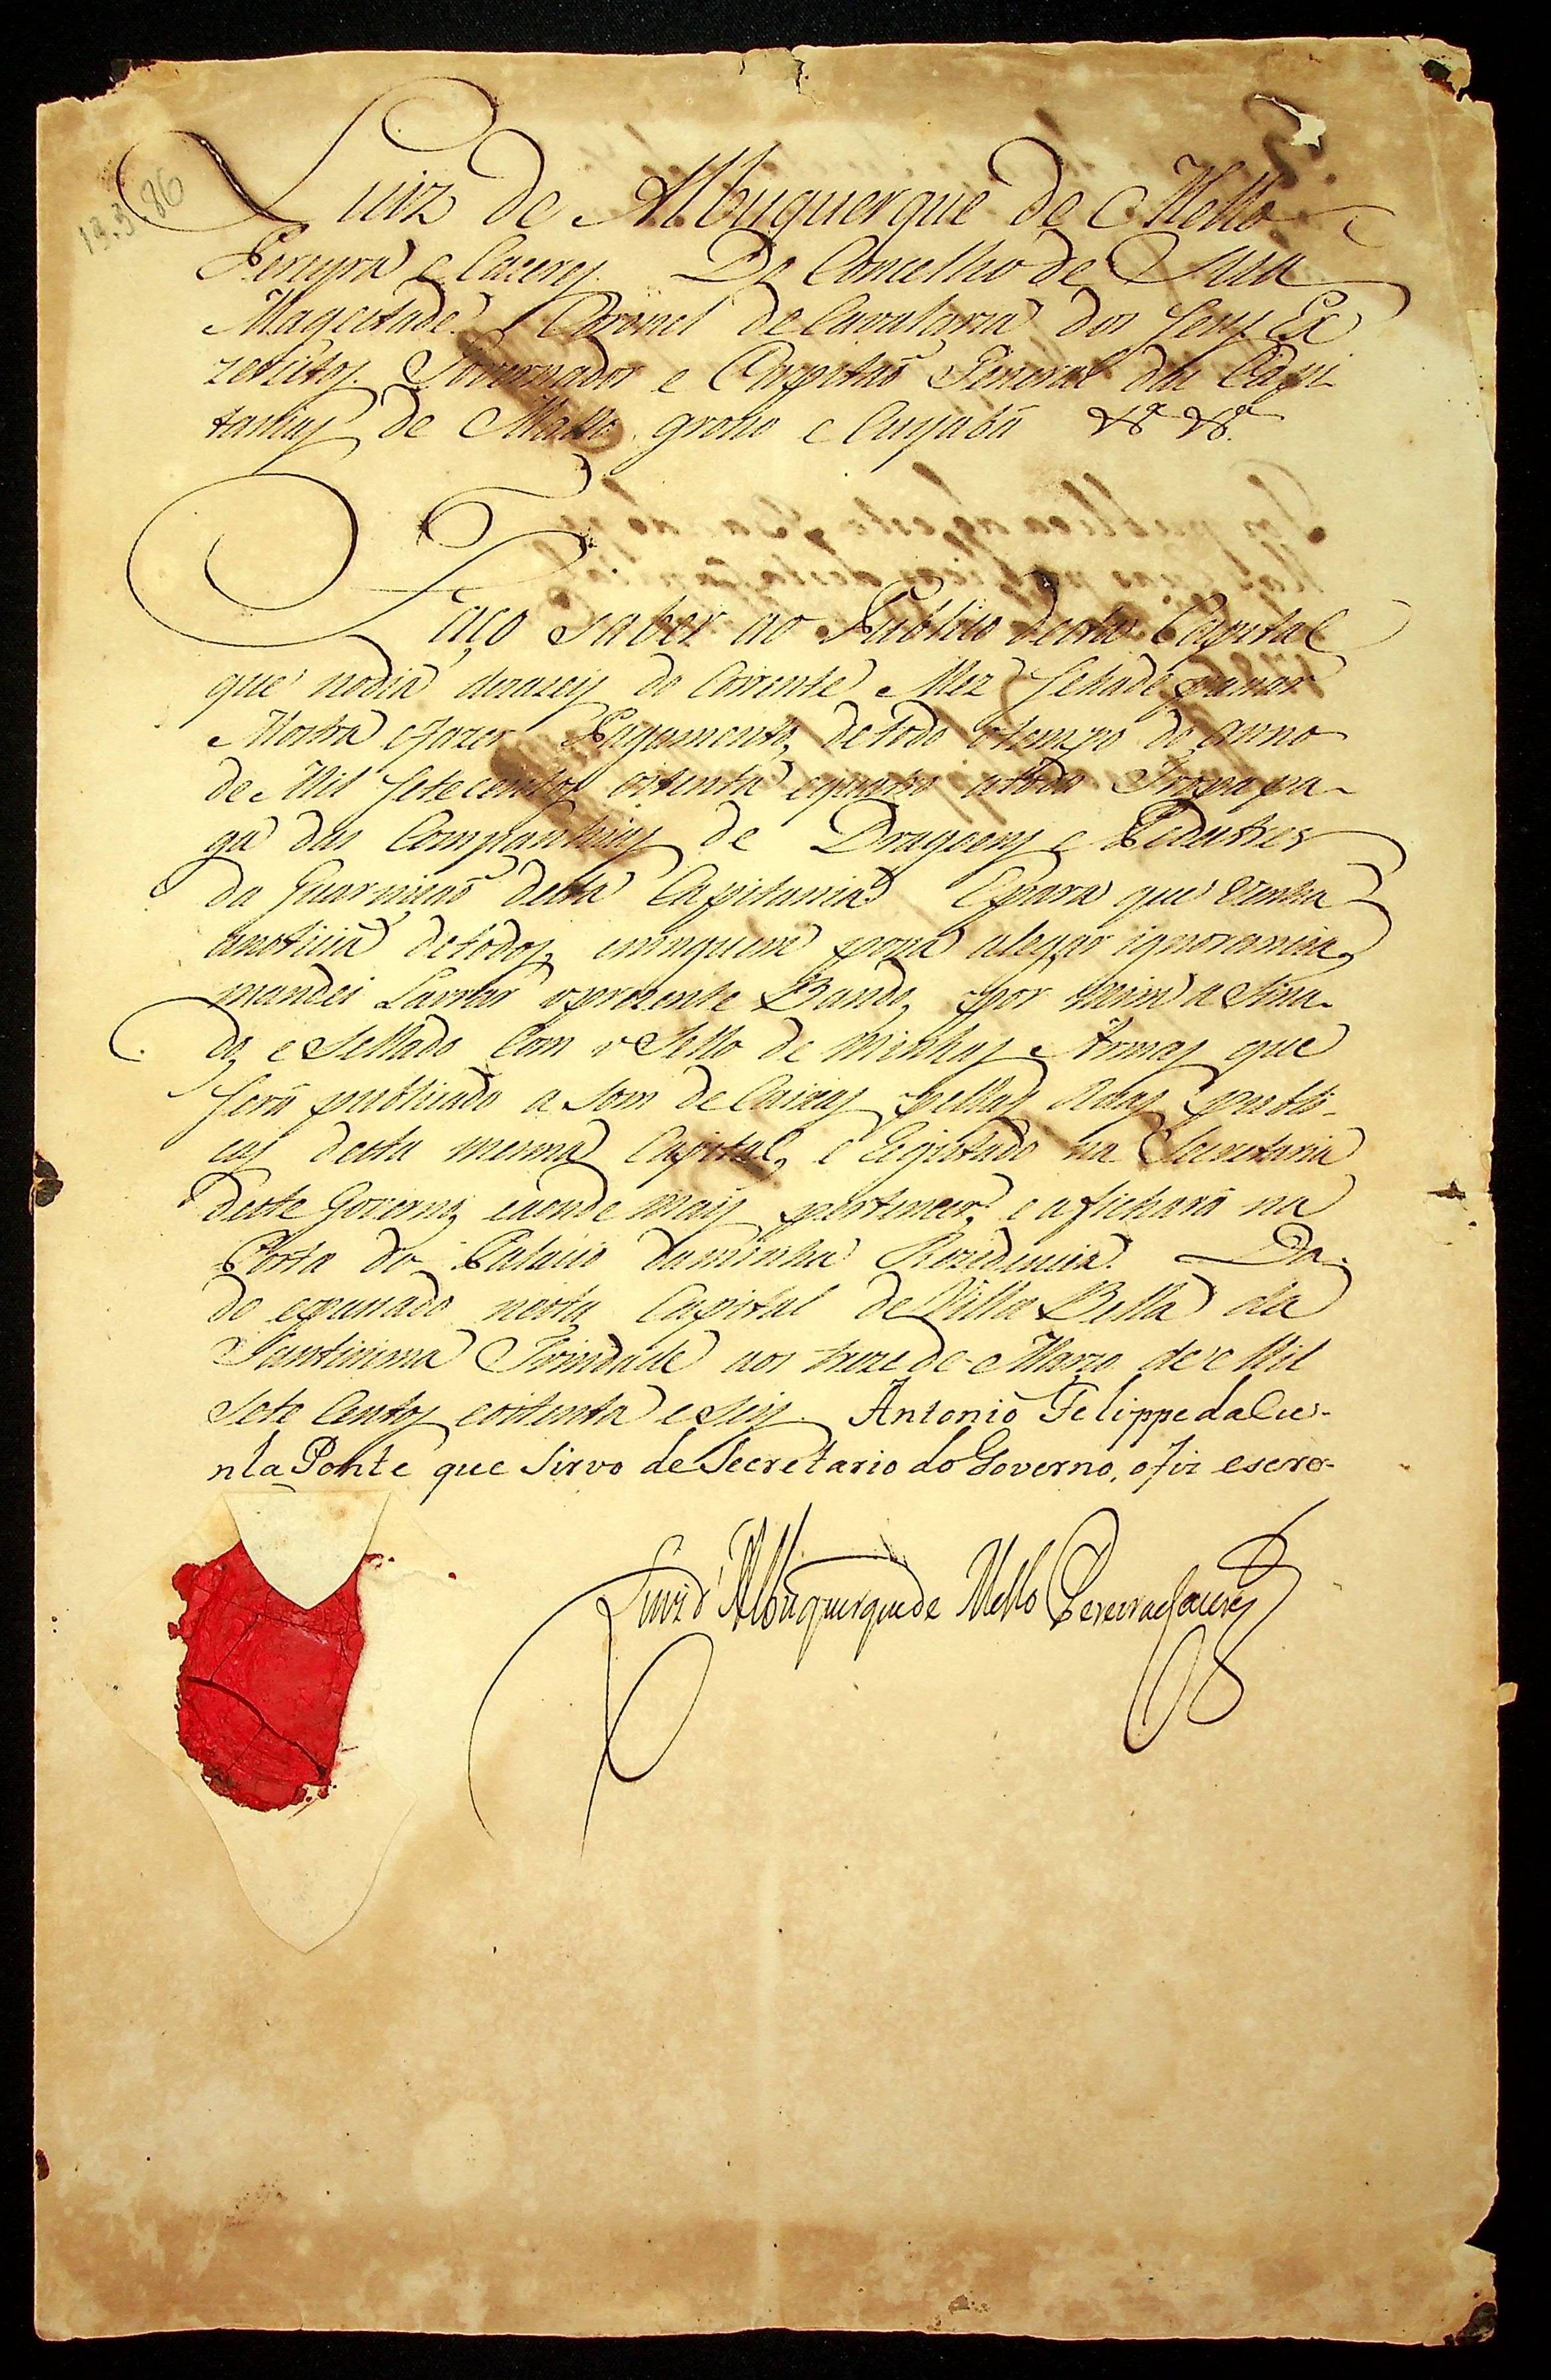 13.3.86
Luiz de Albuquerque de Mello
Pereyra e Caceres Do Concelho de Sua
Magestade Coronel de Cavalaria dos seus Ex
zercitos Governador e Capitaõ General das Capi
tanias de Matto groso e Cuyabá &ª &ª
Faço saber ao Publico desta Capital
que nodia dezaseis do Corrente Mez sehade pasar
Mostra efazer Pagamento, detodo otempo do anno
de Mil setecentos oitenta equatro atoda Tropa pa-
ga das Companhias de Dragoens e Pedestres
da Guarniçaõ desta Capitania Epara que venha
anoticia detodos, eninguem posa alegar ignorancia,
mandei Lavrar oprezente Bando, por mim asina-
do, e Sellado Com o Sello de Minhas Armas que
será publicado a som de Caixas pellas Ruas publi-
cas desta mesma Capital, e Registado na Secretaria
deste Governo, eaonde mais pertencer, e afichará na
Porta do Palacio daminha Rezidencia. Da-
do epasado nesta Capital de Villa Bella da
Santisima Trindade aos treze de Março de Mil
Sete Centos eoitenta e seis. Antonio Felippe da Cu-
nha Ponte que sirvo de Secretario do Governo, o fiz escre-
Luiz d'Albuquerque de Mello Pereira e Caceres